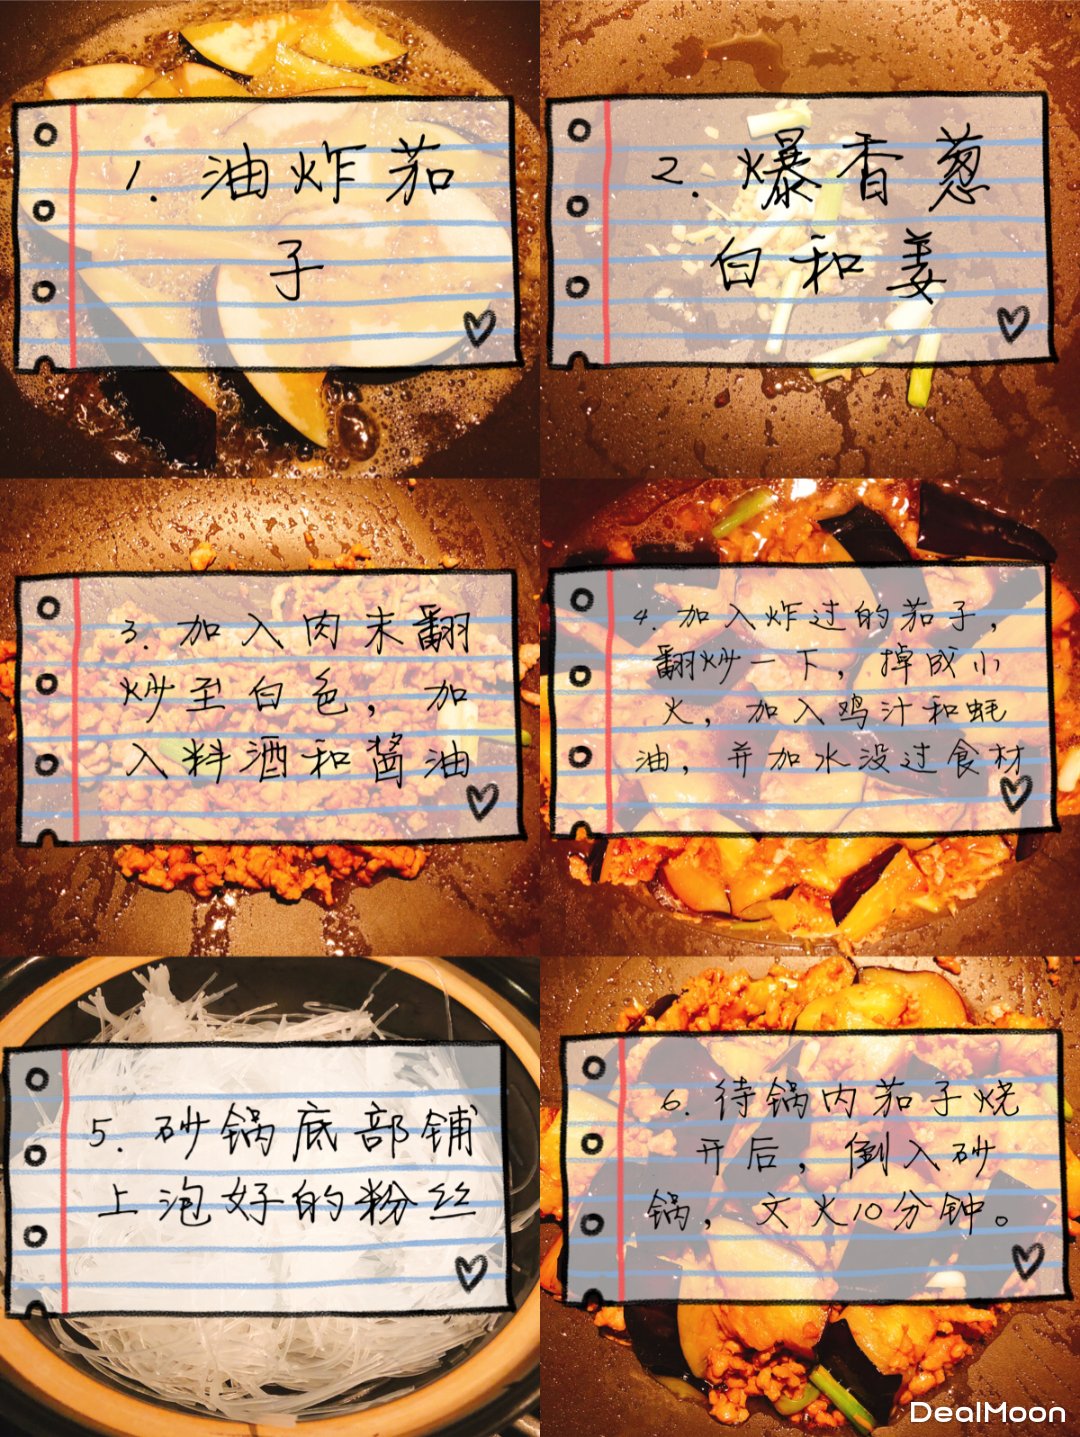 1. 油炸茄
子
2. 爆香葱
白和姜
3. 加入肉末翻
炒至白色，加
入料酒和酱油
4. 加入炸过的茄子，
翻炒一下，掉成小
火，加入鸡汁和蚝
油，并加水没过食材
5. 砂锅底部铺
上泡好的粉丝
6. 待锅内茄子烧
开后，倒入砂
锅，文火10分钟。
DealMoon